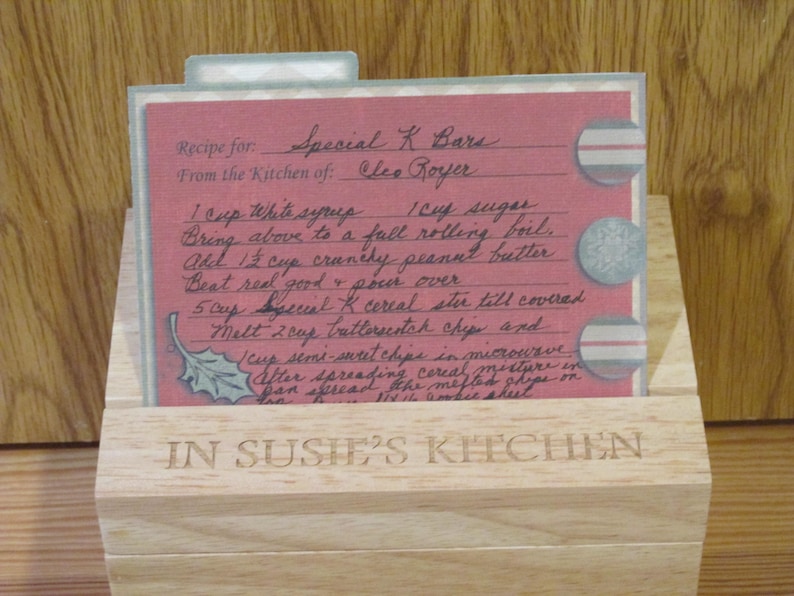 Recipe for: Special K Bars
From the Kitchen of: Cleo Royer
1 cup White syrup 1 cup sugar
Bring above to a full rolling boil.
Add 1 1/2 cup crunchy peanut butter
Beat real good & pour over
5 cup Special K cereal stir till covered
Melt 2 cup butterscotch chips and
1 cup semi-sweet chips in microwave
After spreading cereal mixture in
pan spread the melted chips on
cookie sheet
IN SUSIE'S KITCHEN